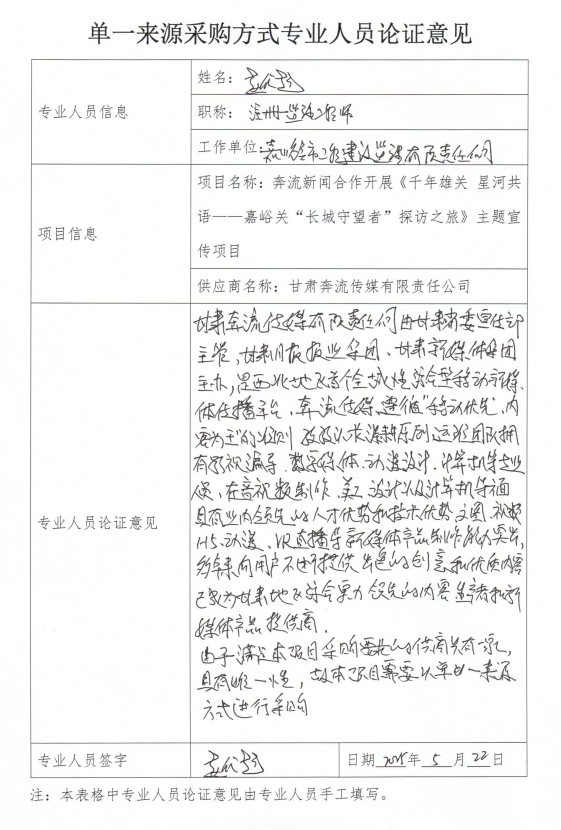 单一来源采购方式专业人员论证意见
专业人员信息
姓名：
职称：注册监理工程师
工作单位：嘉峪关市工程建设监理有限责任公司
项目信息
项目名称：奔流新闻合作开展《千年雄关 星河共
语——嘉峪关“长城守望者”探访之旅》主题宣
传项目
供应商名称：甘肃奔流传媒有限责任公司
专业人员论证意见
甘肃奔流传媒有限责任公司由甘肃省委宣传部
主管、甘肃日报报业集团、甘肃新媒体集团
主办，是西北地区首个全域性综合型移动新媒
体传播平台、奔流传媒遵循“移动优先、内
容为王”的原则 运維团队拥
有影视编导、数字媒体、动漫设计、计算机等专业
人员，在音视频制作、美工设计以及计算机等方面
具有业内领先的人才优势和技术优势 文图、视频
H5、动漫、VR直播等新媒体产品制作能力突出，
多年来向用户不断提供出色的创意和优质内容
已成为甘肃地区综合实力领先的内容生产者和新
媒体产品提供商。
由于满足本项目采购要求的供商只有一家，
具有唯一性，故本项目需要以单一来源
方式进行采购
专业人员签字
日期 2025年 5 月 22 日
注：本表格中专业人员论证意见由专业人员手工填写。